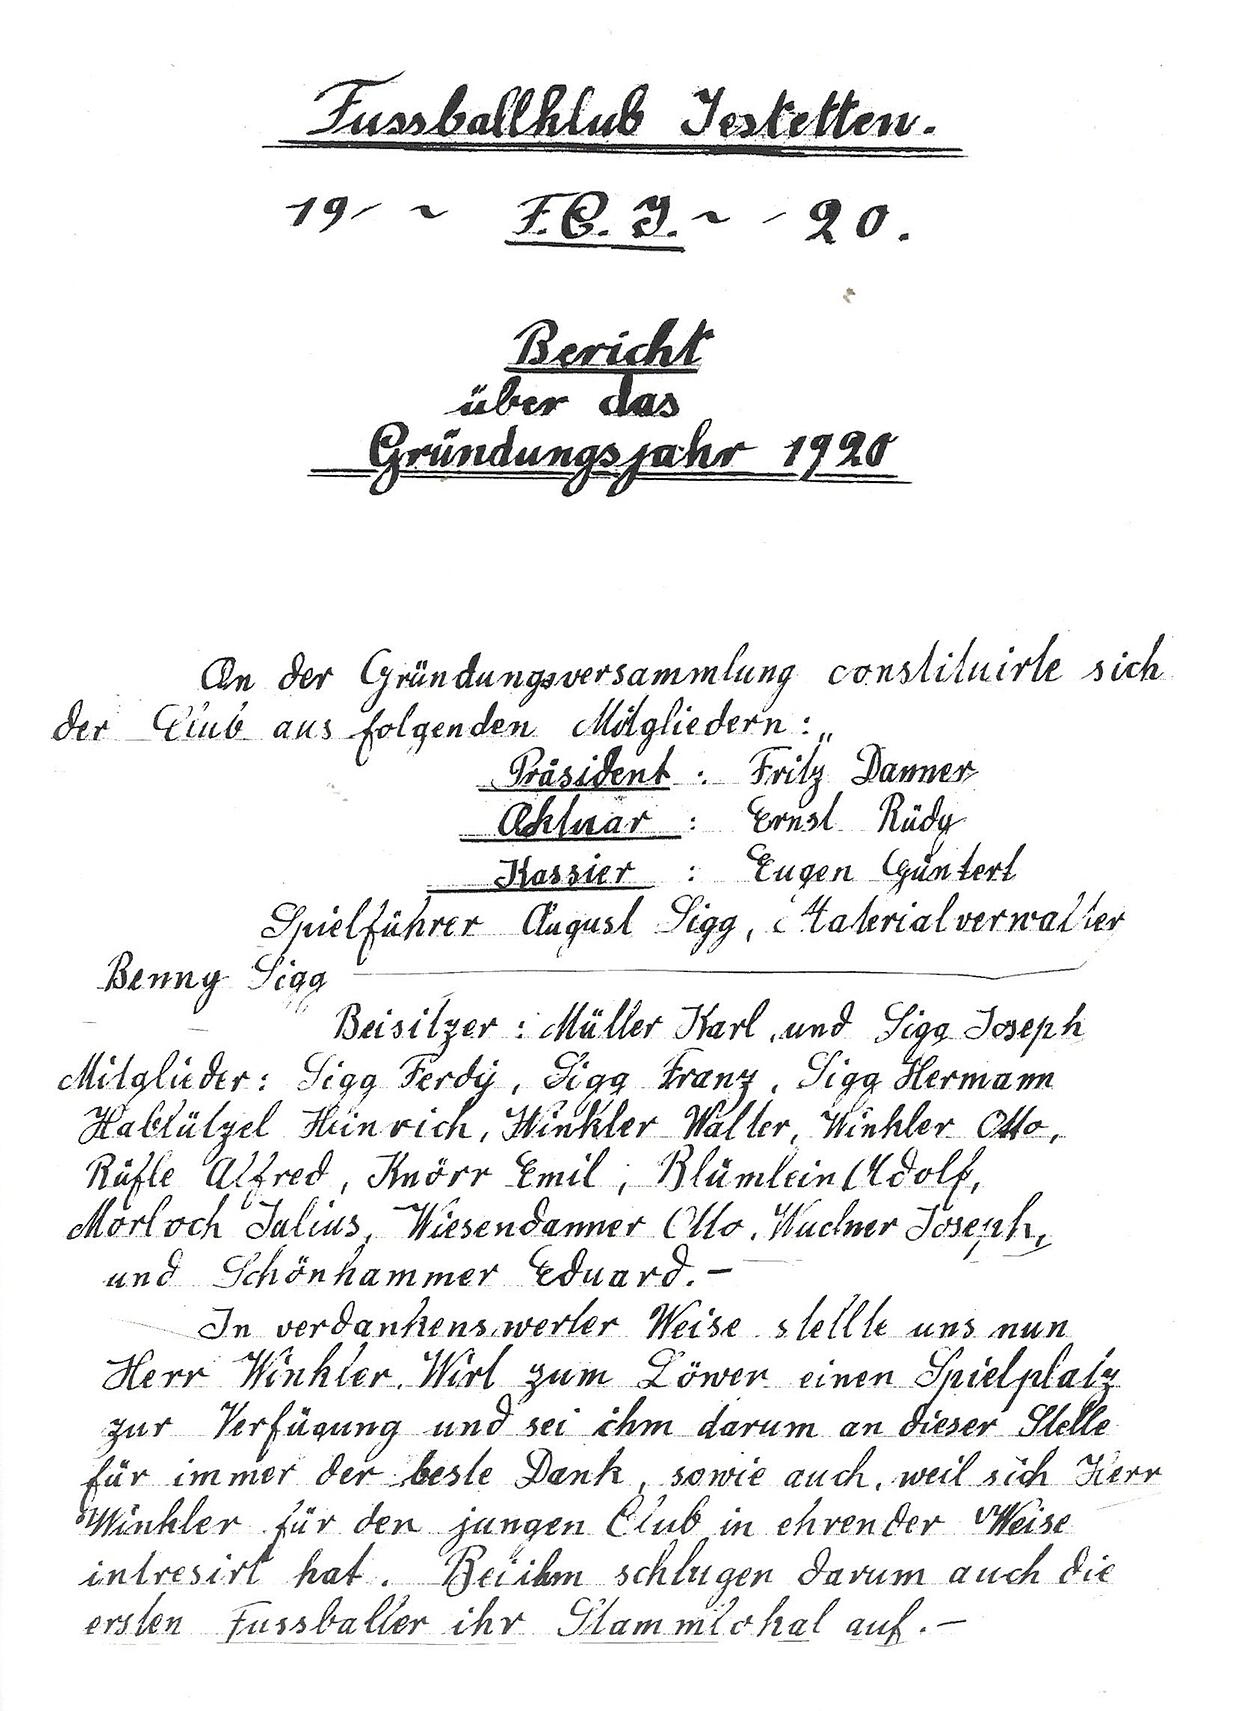 Fussballklub Jestetten.
19 ~ F.C.J. ~ 20.
Bericht
über das
Gründungsjahr 1920
An der Gründungsversammlung constituirte sich
der Club aus folgenden Mitgliedern:„
Präsident : Fritz Danner
Aktuar : Ernst Rüdy
Kassier : Eugen Güntert
Spielführer August Sigg, Materialverwalter
Benny Sigg
Beisitzer : Müller Karl, und Sigg Joseph
Mitglieder: Sigg Ferdy, Sigg Franz, Sigg Hermann
Hablützel Heinrich, Winkler Walter, Winkler Otto,
Rüfle Alfred, Knörr Emil, Blümlein Adolf,
Morloch Julius, Wiesendanner Otto, Wuchner Joseph,
und Schönhammer Eduard. –
In verdankenswerter Weise stellte uns nun
Herr Winkler. Wirt zum Löwen einen Spielplatz
zur Verfügung und sei ihm darum an dieser Stelle
für immer der beste Dank, sowie auch, weil sich Herr
Winkler für den jungen Club in ehrender Weise
intresirt hat. Bei ihm schlugen darum auch die
ersten Fussballer ihr Stammlokal auf. –